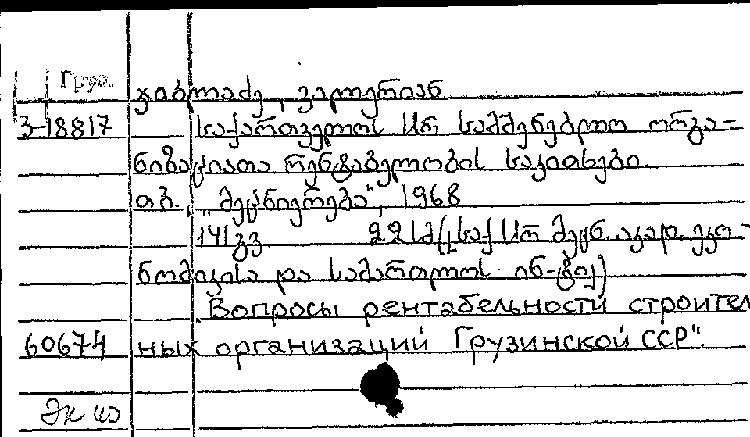 Груз.
ჯიბლაძე, ვალერიან
3-18817 საქართველოს სსრ სამშენებლო ორგა-
ნიზაციათა რენტაბელობის საკითხები.
თბ., "მეცნიერება", 1968
141გვ 22სმ (საქ სსრ მეცნ. აკად. ეკო-
ნომიკისა და სამართლის ინ-ტი)
"Вопросы рентабельности строитель
60674 ных организаций Грузинской ССР".